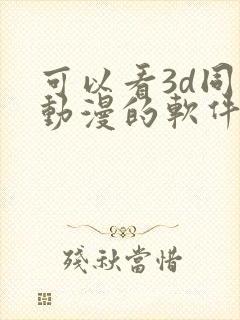 可以看3d同
動漫的軟件
殘秋當惜